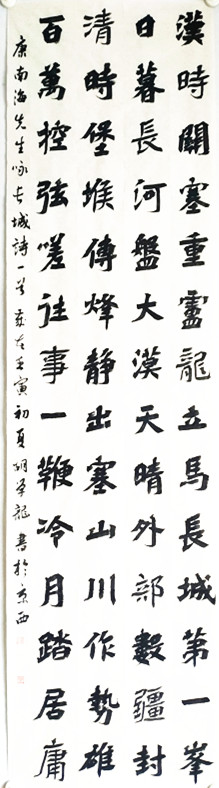 漢時關塞重盧龍立馬長城第一峯
日暮長河盤大漠天晴外部數疆封
清時堡堠傳烽静出塞山川作勢雄
百萬控弦嗟往事一鞭冷月踏居庸
康南海先生咏長城詩一首歲在壬寅初夏龍書於京西